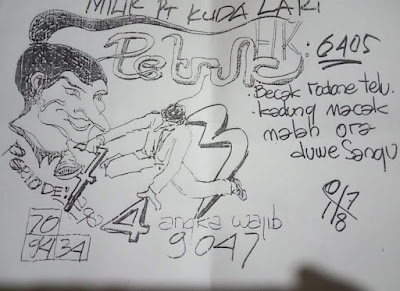 MILIK PT KUDA LARI
HK : 6405
Becak rodane telu.
kadung macak
malah ora
duwe sangu
PERIODE:
4
angka wajib
9047
0/7
8
70
94 34